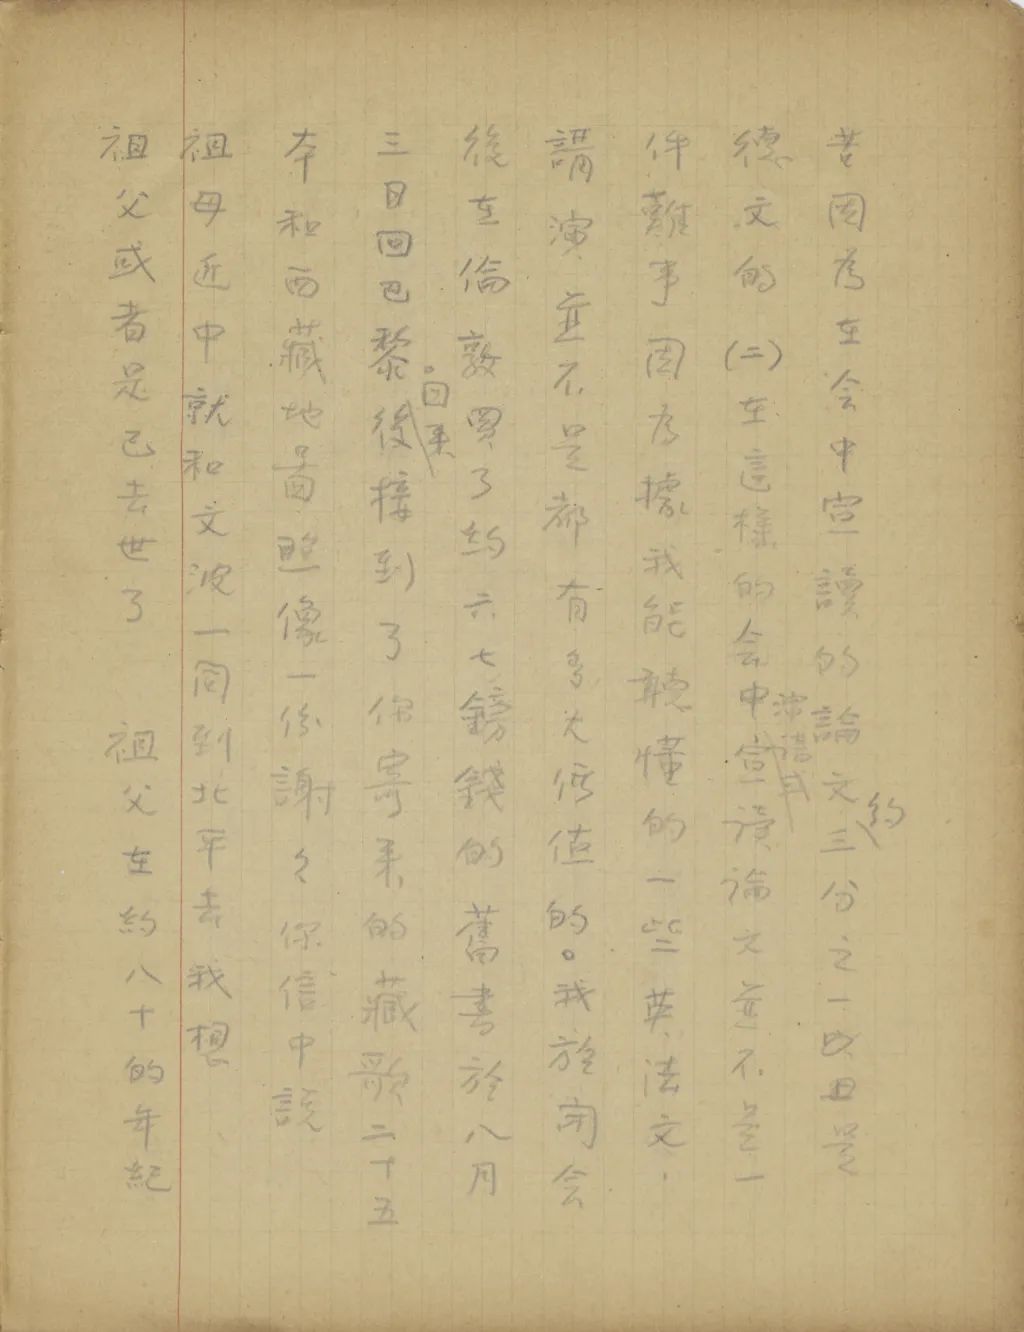 苦因為在会中宣讀的論文約三分之一以且是
德文的(二)在這樣的会中演講或宣讀論文並不是一
件難事因為據我能聽懂的一些英法文，
講演並不是都有多大價值的。我於開会
後在倫敦買了約六七鎊錢的舊書於八月
三日回巴黎。回来後接到了你寄来的藏歌二十五
本和西藏地啚照像一份謝々你信中説
祖母近中就和文波一同到北平去我想
祖父或者是已去世了 祖父在約八十的年紀